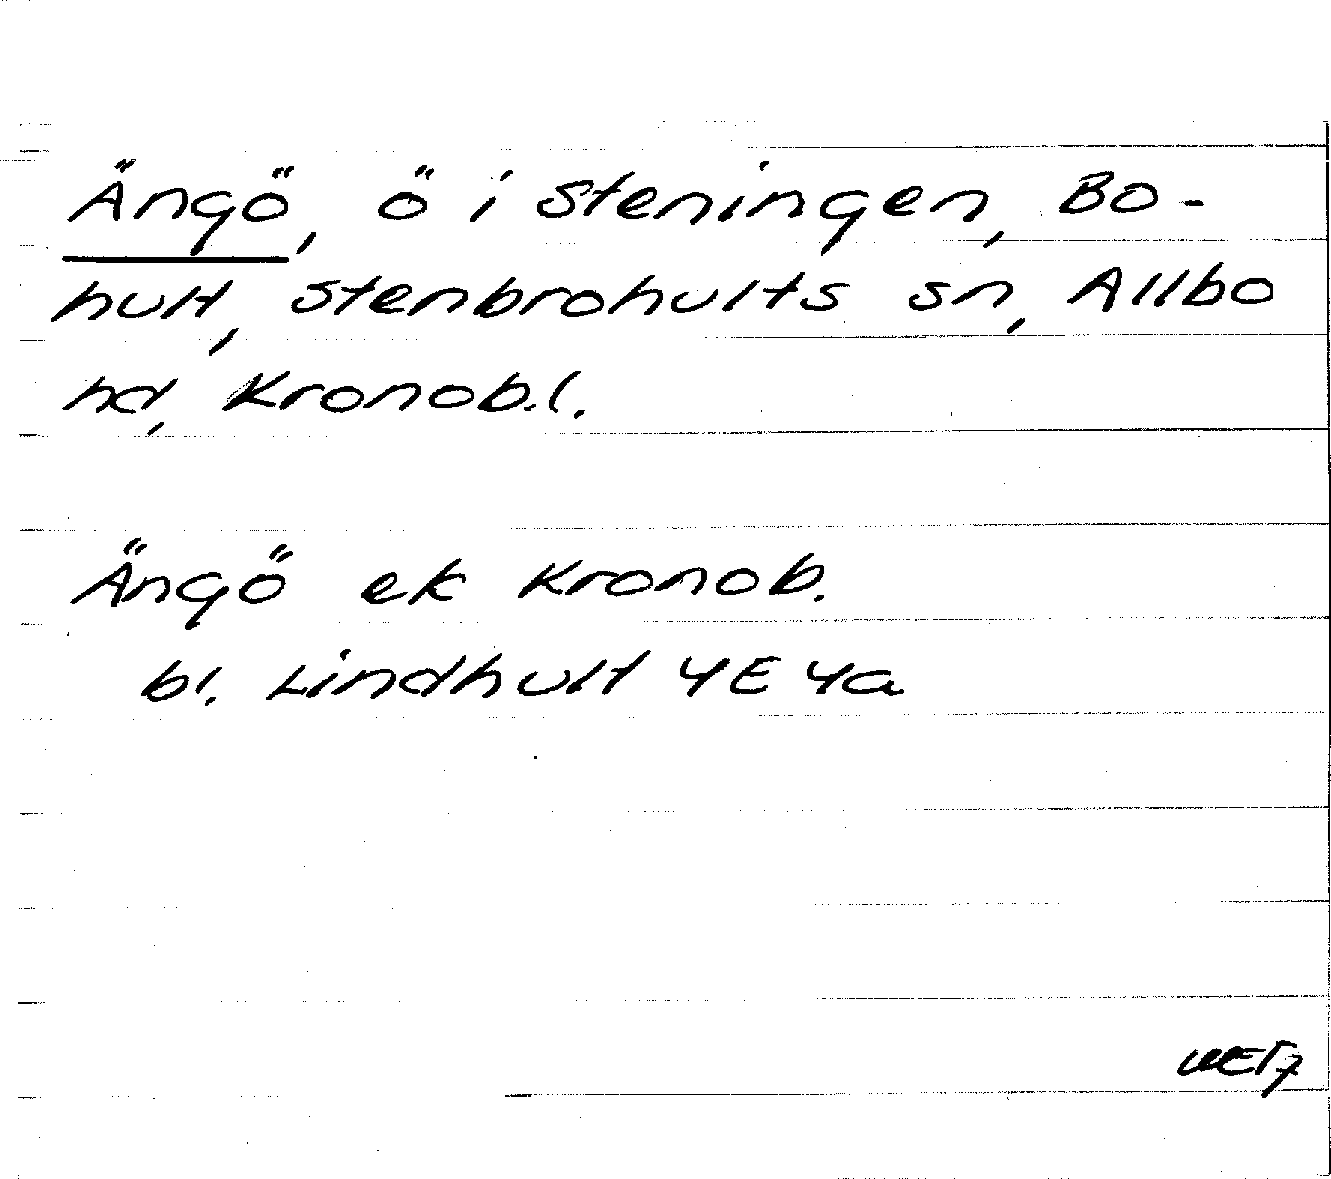 Ängö, ö i Steningen, Bo-
hult, Stenbrohults sn, Allbo
hd, Kronob.l.
Ängö ek Kronob.
bl. Lindhult 4E 4a